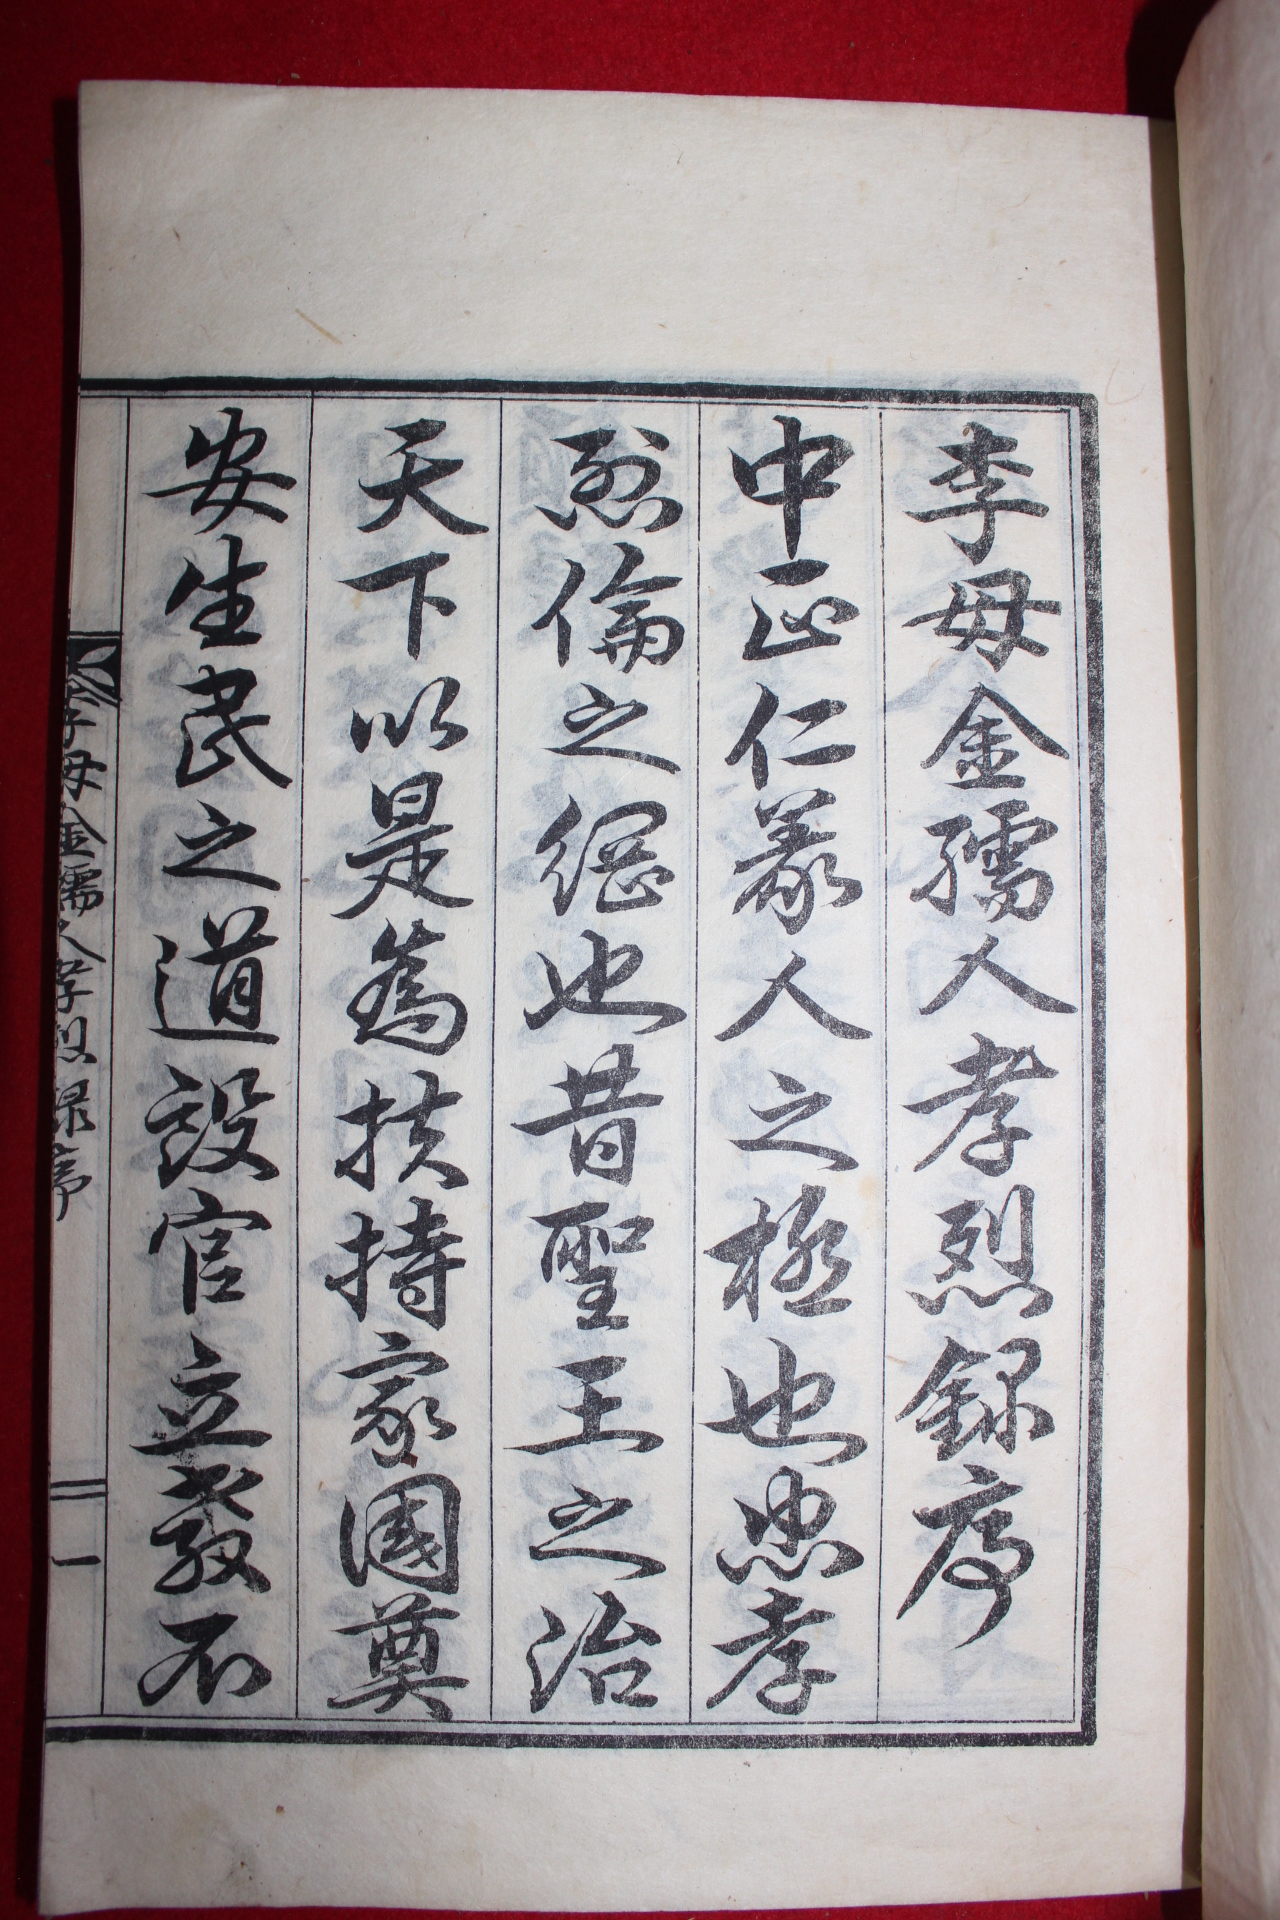 李母金孺人孝烈錄序
中正仁義人人之極也忠孝
烈倫之綱也昔聖王之治
天下以是爲扶持家國奠
安生民之道設官立敎不
李母金孺人孝烈錄序
一